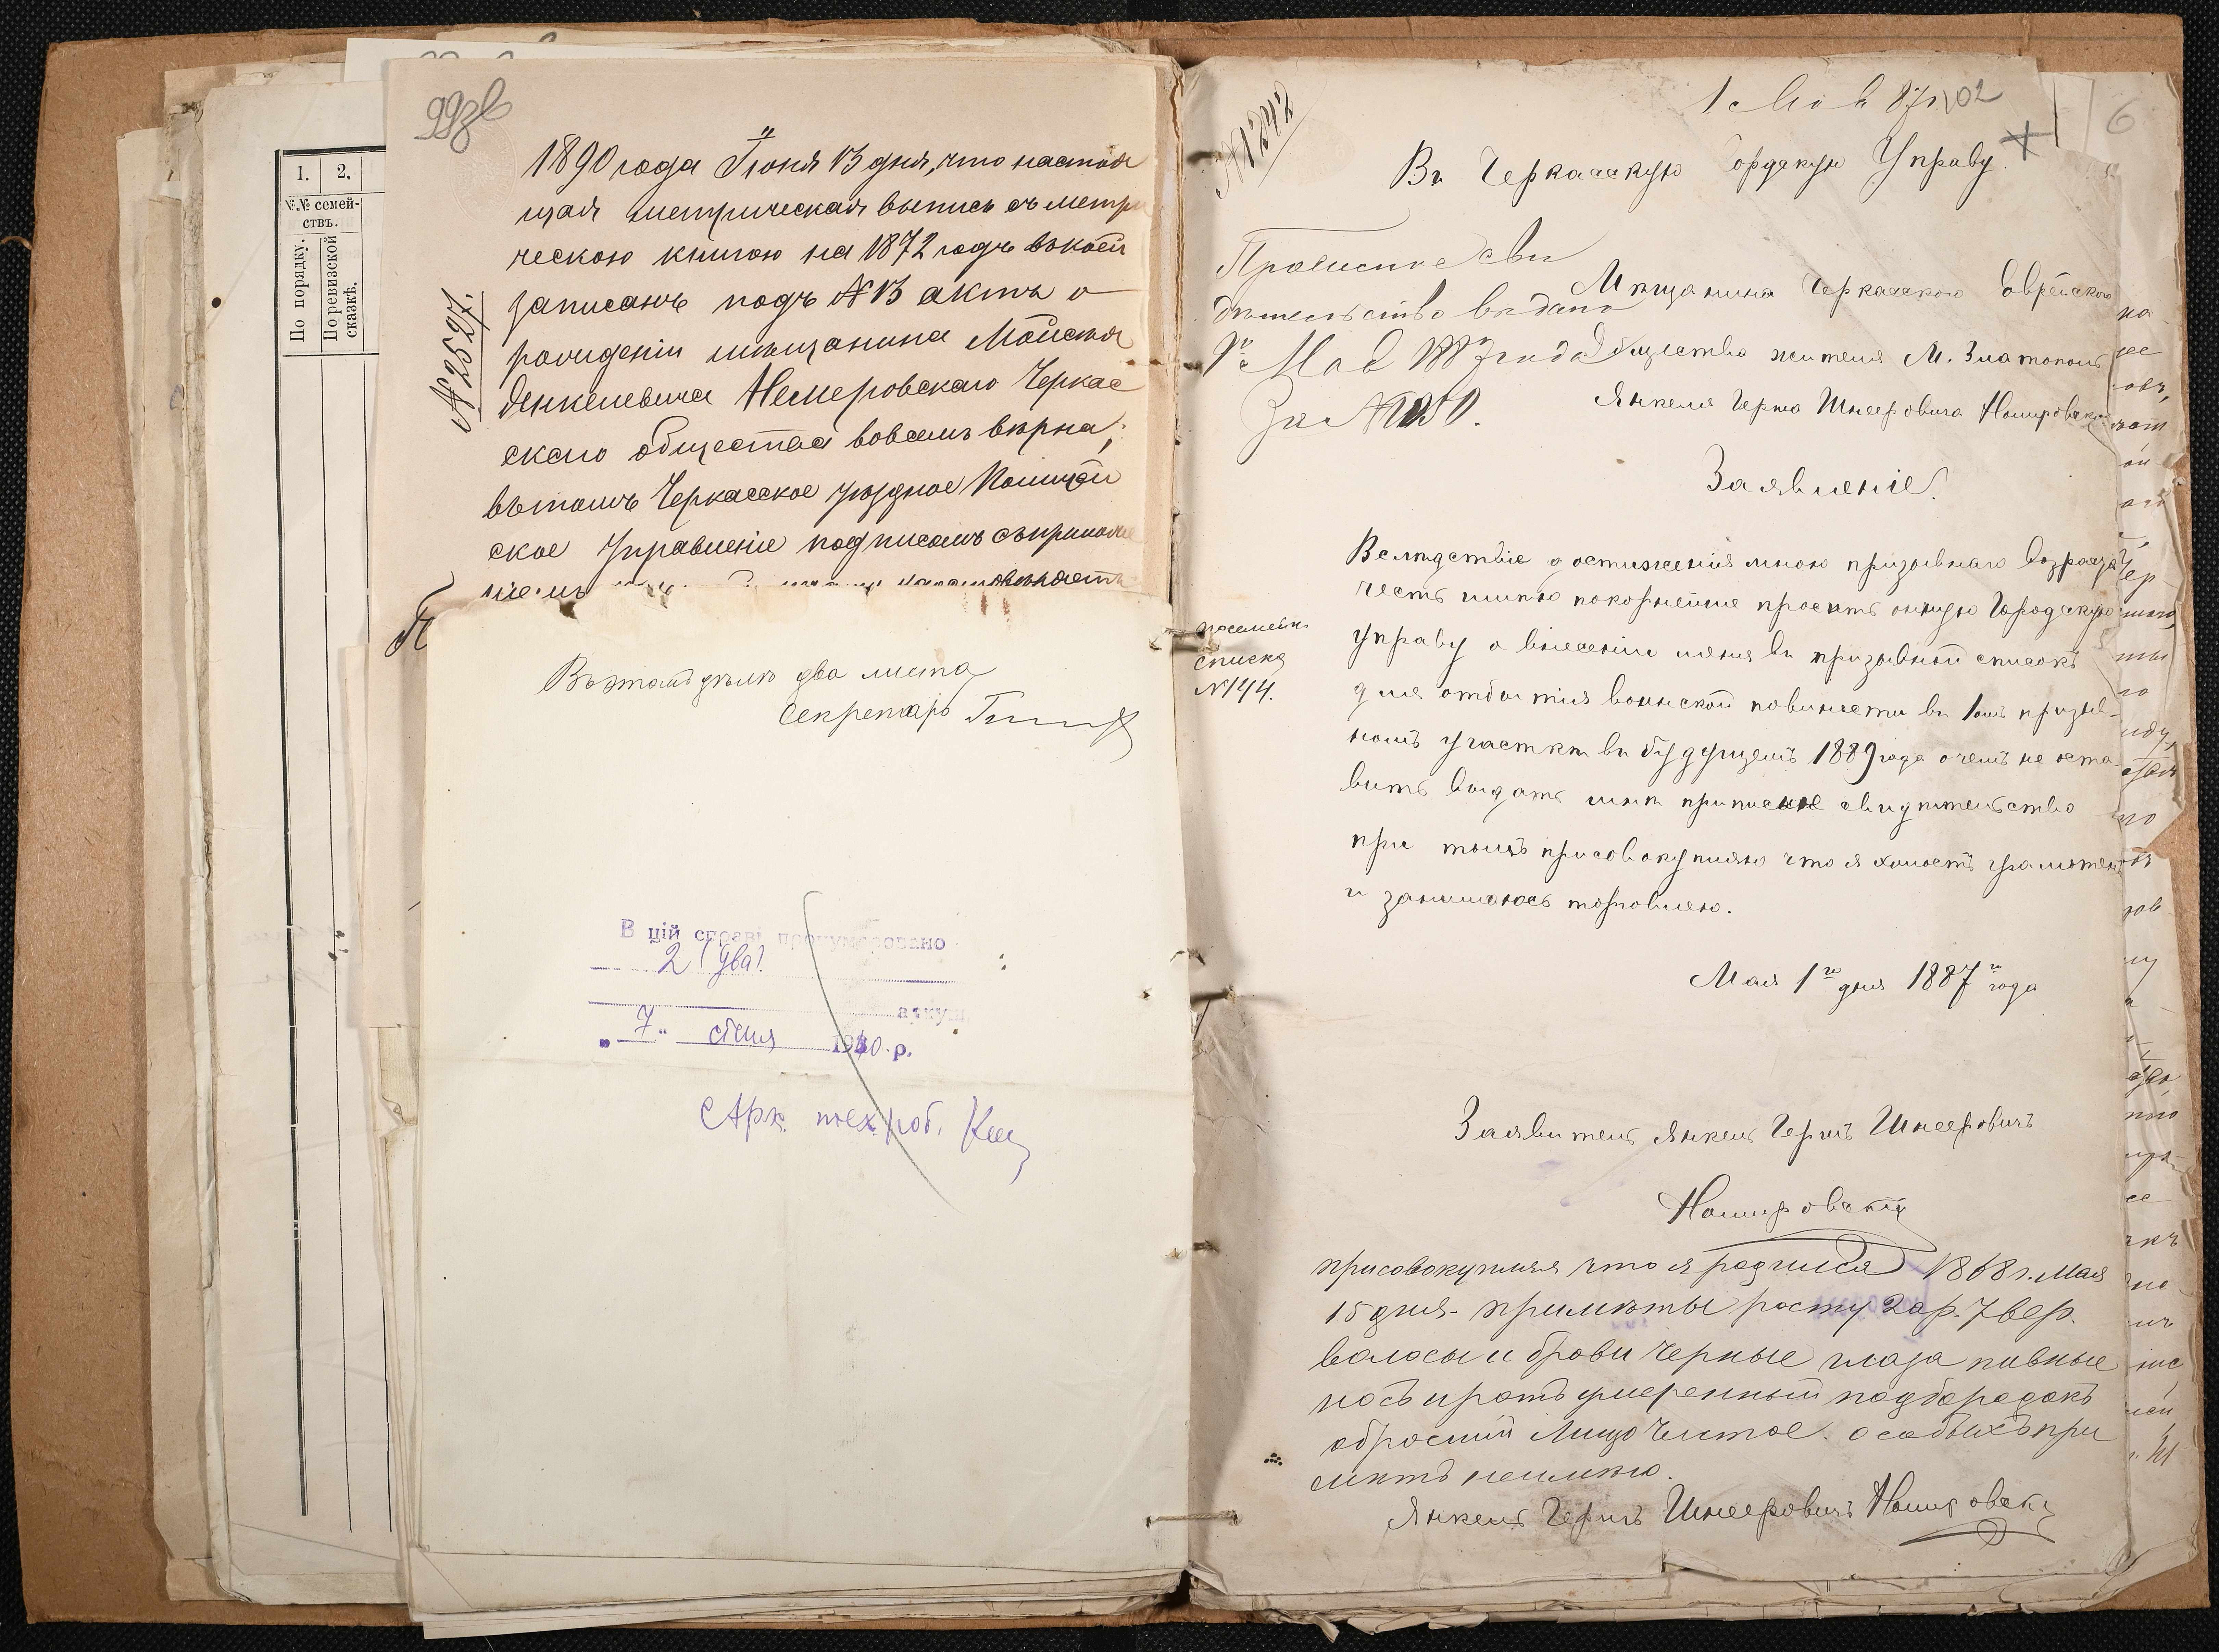 99зв
1.
2.
№№ семей-
ствъ.
По порядку.
По ревизской
сказкѣ.
№ 2527.
1890 года Іюня 13 дня, что настоя
щая метрическая выпись съ метри
ческою книгою на 1872 годъ въ коей
записанъ подъ № 13 актъ о
рожденіи мѣщанина Мойсея
Янкелевича Немеровскаго Черкас
скаго общества во всемъ вѣрна;
въ томъ Черкасское уѣздное Полицей
ское Управленіе подписомъ съ приложе
ніемъ
Въ этомъ дѣлѣ два листа
Секретарь
В цій справі пронумеровано
2 (два)
аркуш
„7“ січня 1940 р.
Арх. тех. роб.
№ 1242
1 Мая 87 г.
102
6
Въ Черкасскую Городскую Управу.
Приписное сви
дѣтельство выдано
1го Мая 1887 года
За № 1250.
Мѣщанина Черкасскаго Еврейскаго
Общества жителя М. Златополь
Янкеля Герша Шнееровича Номировскаго
Заявленіе.
Вслѣдствіе достиженія мною призывнаго возраста
честь имѣю покорнейше просить оную Городскую
управу о внесеніи меня въ призывной списокъ
для отбытія воинской повинности въ 1омъ призыв-
номъ участкѣ въ будущемъ 1889 года о чемъ не оста-
вить выдать мнѣ приписное свидѣтельство
при томъ присовокупляю что я холостъ грамотенъ
и занимаюсь торговлею.
посемейн.
списка
№ 144.
Мая 1го дня 1887го года
Заявитель Янкель Гершъ Шнееровичъ
Номировскій
присовокупляя что я родился 1868 г. Мая
15 дня. примѣты росту 2 ар. 7 вер.
волосы и брови черные глаза пивные
носъ и ротъ умеренный подбородокъ
обросшій Лицо чистое. особыхъ при
мѣтъ неимѣю.
Янкель Гершъ Шнееровичъ Номировскій